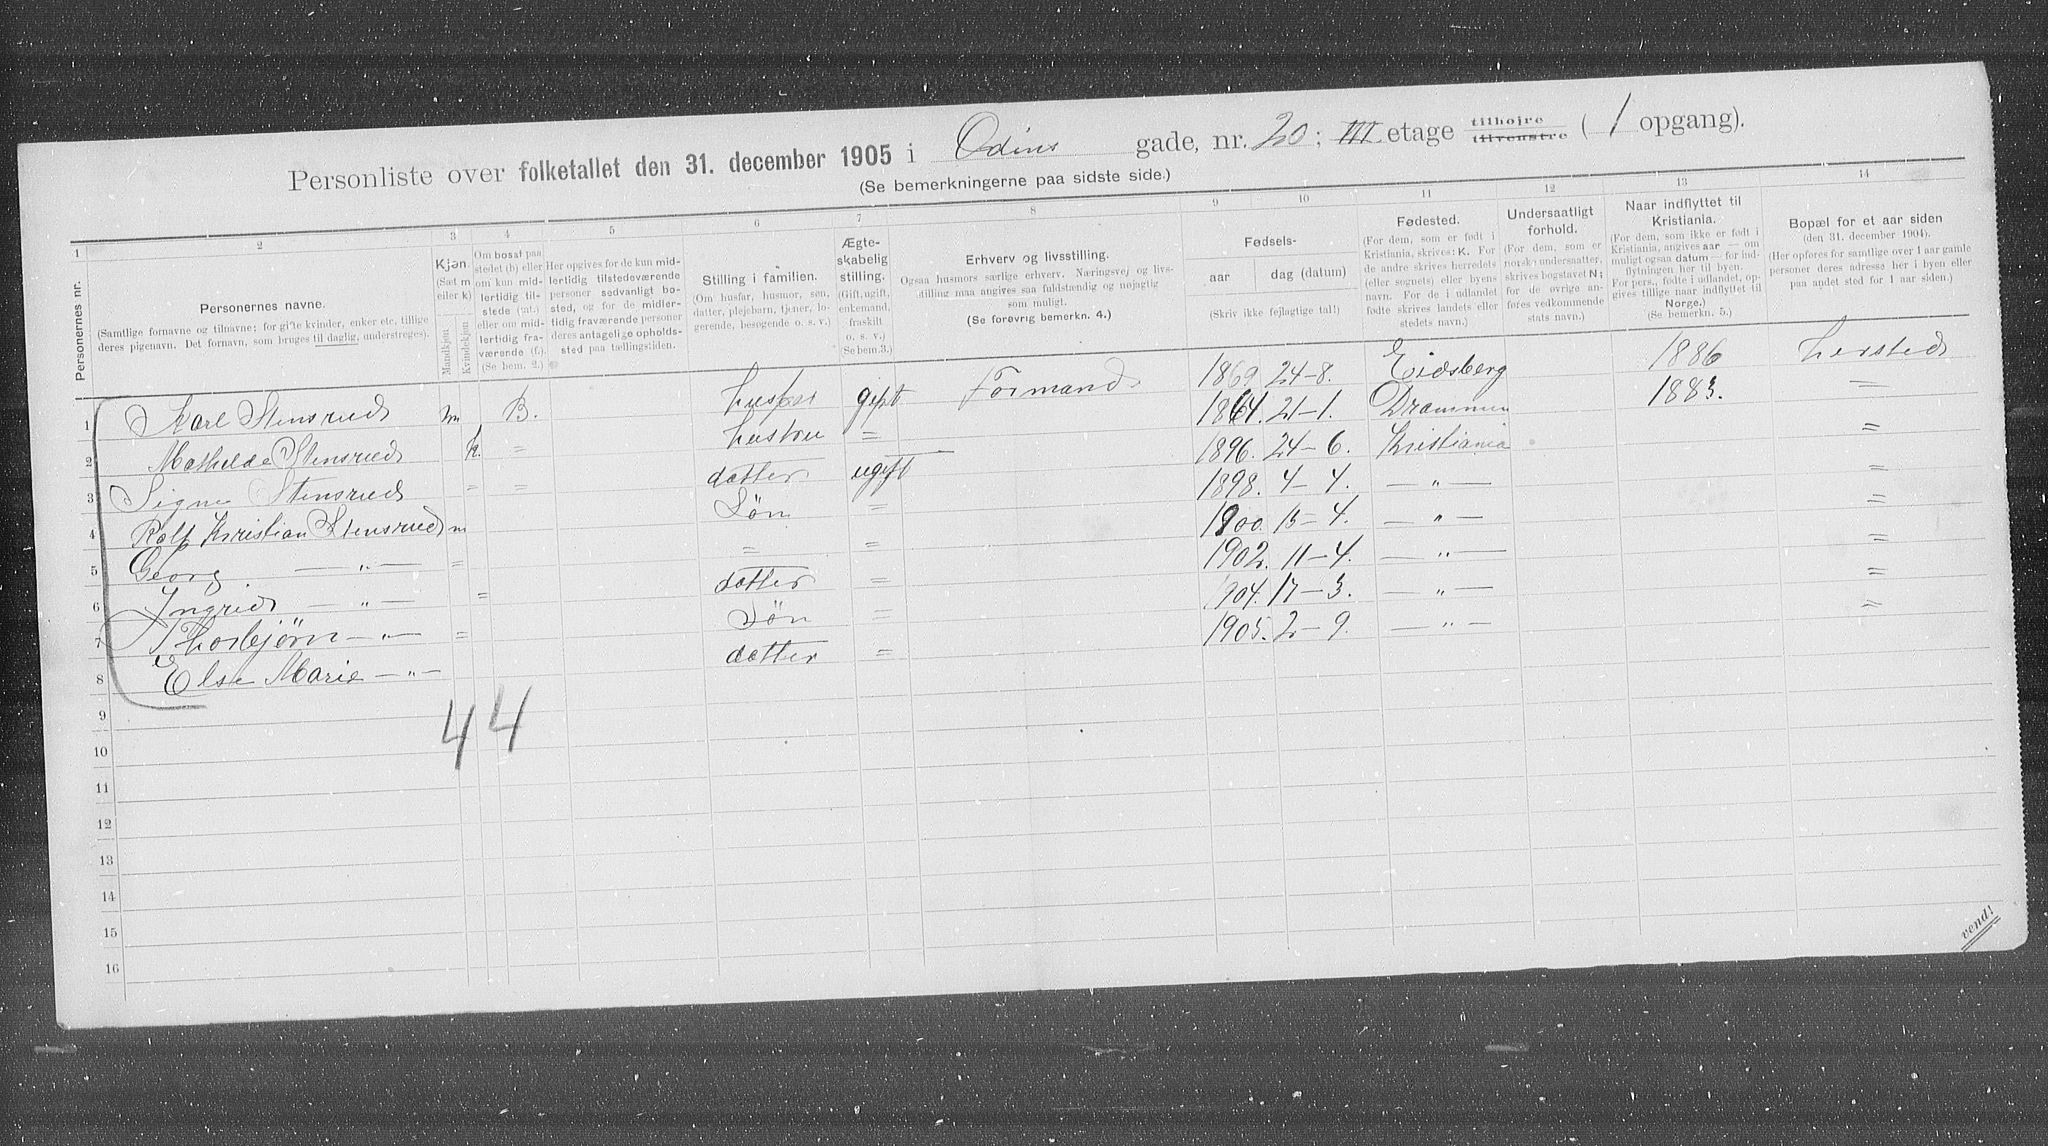 Personliste over folketallet den 31. december 1905 i Odins gade, nr. 20; III etage tilhøjre tilvenstre ( 1 opgang).
(Se bemerkningerne paa sidste side.)
1 2 3 4 5 6 7 8 9 10 11 12 13 14
Personernes nr.
Personernes navne.
(Samtlige fornavne og tilnavne; for gifte kvinder, enker etc. tillige deres pigenavn. Det fornavn, som bruges til daglig, understreges).
Kjøn. (Sæt m eller k)
Mandkjøn Kvindekjøn
Om bosat paa stedet (b) eller om kun midlertidig tilstede (mt.) eller om midlertidig fraværende (f.). (Se bem. 2.)
Her opgives for de kun midlertidig tilstedeværende personer sedvanligt bosted, og for de midlertidig fraværende personer deres antagelige opholdssted paa tællingstiden.
Stilling i familien.
(Om husfar, husmor, søn, datter, plejebarn, tjener, logerende, besøgende o. s. v.)
Ægteskabelig stilling.
(Gift, ugift, enkemand, fraskilt o. s. v.) (Se bem. 3.)
Erhverv og livsstilling.
Ogsaa husmors særlige erhverv. Næringsvej og livsstilling maa angives saa fuldstændig og nøjagtig som muligt.
(Se forøvrig bemerkn. 4.)
Fødsels-
aar dag (datum)
(Skriv ikke fejlagtige tal!)
Fødested.
(For dem, som er født i Kristiania, skrives: K. For de andre skrives herredets (eller sognets) eller byens navn. For de i udlandet fødte skrives landets eller stedets navn.)
Undersaatligt forhold.
(For dem, som er norske undersaatter, skrives bogstavet N; for de øvrige anføres vedkommende stats navn.)
Naar indflyttet til Kristiania.
(For dem, som ikke er født i Kristiania, angives aar — om muligt ogsaa datum — for indflytningen her til byen. For pers., fødte i udlandet, opgives tillige naar indflyttet til Norge.) (Se bemerkn. 5.)
Bopæl for et aar siden
(den 31. december 1904).
(Her opføres for samtlige over 1 aar gamle personer deres adresse her i byen eller paa andet sted for 1 aar siden.)
1 Karl Stensrud m B. husfar gift Formand 1869 24-8. Eidsberg 1886 hersteds
2 Mathilde Stensrud k. = hustru = 1864. 21-1. Drammen 1883. —
3 Signe Stensrud = = datter ugift 1896. 24-6. Kristiania =
4 Rolf Kristian Stensrud m Søn = 1898. 4-4. — „ — =
5 Georg — „ — = = = 1900. 15-4. — „ — =
6 Ingrid — „ — = datter = 1902. 11-4. — „ — =
7 Thorbjørn — „ — = Søn = 1904. 17-3. — „ — =
8 Else Marie — „ — datter = 1905. 2-9. — „ — =
9 4 4
10
11
12
13
14
15
16
vend!